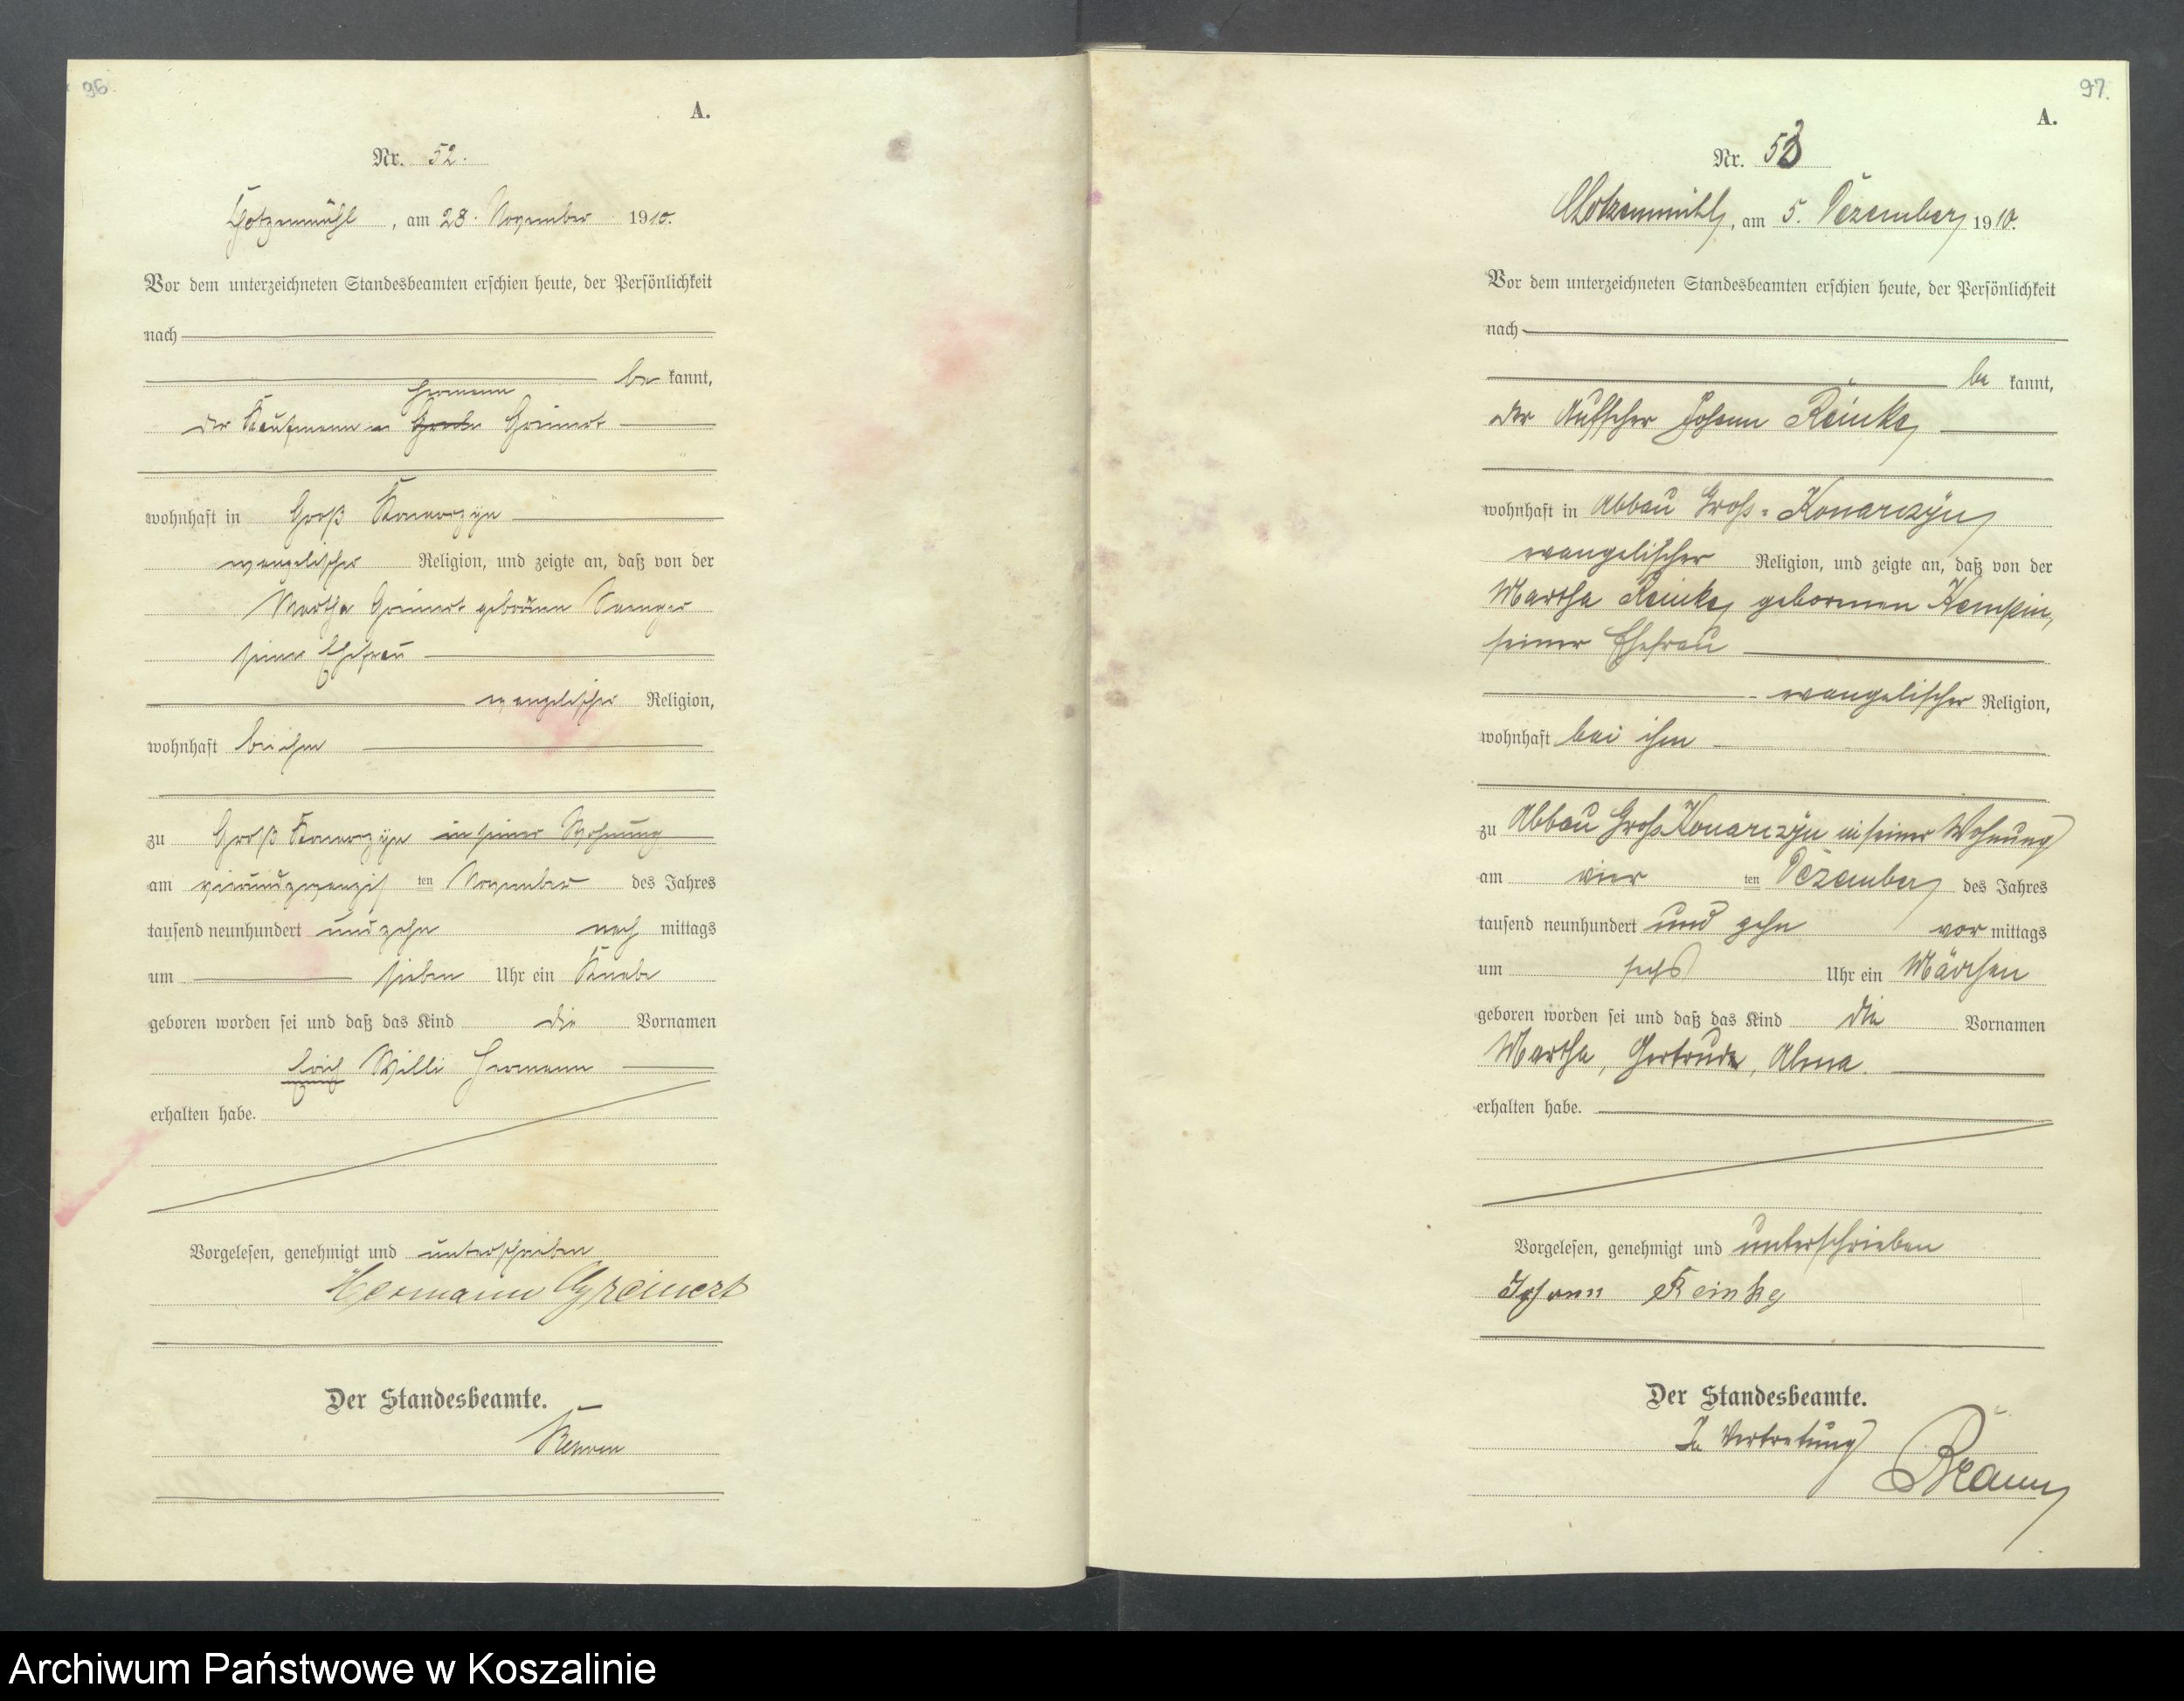 96.
A.
Nr. 52.
Klotzenmühl, am 28. November 1910.
Vor dem unterzeichneten Standesbeamten erschien heute, der Persönlichkeit
nach
be kannt,
Hermann
der Kaufmann Greinert
wohnhaft in Groß Konarzyn
evangelischer Religion, und zeigte an, daß von der
Martha Greinert geborenen Saenger
seiner Ehefrau
evangelischer Religion,
wohnhaft bei ihm
zu Groß Konarzyn in seiner Wohnung
am vierundzwanzigsten November des Jahres
tausend neunhundert und zehn nach mittags
um sieben Uhr ein Knabe
geboren worden sei und daß das Kind die Vornamen
Erich Willi Hermann
erhalten habe.
Vorgelesen, genehmigt und unterschrieben
Hermann Greinert
Der Standesbeamte.
97.
A.
Nr. 53
Klotzenmühl, am 5. Dezember 1910.
Vor dem unterzeichneten Standesbeamten erschien heute, der Persönlichkeit
nach
be kannt,
der Aufseher Johann Reinke,
wohnhaft in Abbau Gross-Konarczyn
evangelischer Religion, und zeigte an, daß von der
Martha Reinke, geborenen Kempin,
seiner Ehefrau
evangelischer Religion,
wohnhaft bei ihm
zu Abbau Gross Konarczyn in seiner Wohnung
am vier ten Dezember des Jahres
tausend neunhundert und zehn vor mittags
um sechs Uhr ein Mädchen
geboren worden sei und daß das Kind die Vornamen
Martha, Gertrude, Alma.
erhalten habe.
Vorgelesen, genehmigt und unterschrieben
Johann Reinke
Der Standesbeamte.
In Vertretung
Braun
Archiwum Państwowe w Koszalinie